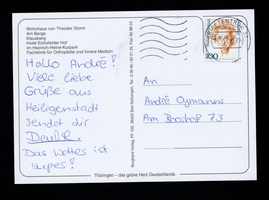 Wohnhaus von Theodor Storm
Am Berge
Klausberg
Hotel Eichsfelder Hof
Im Heinrich-Heine-Kurpark
Fachklinik für Orthopädie und Innere Medizin
Hallo André!
Viele liebe
Grüße aus
Heiligenstadt
sendet dir
Das Wetter ist
super!
An
André
Am
100
Thüringen - das grüne Herz Deutschlands